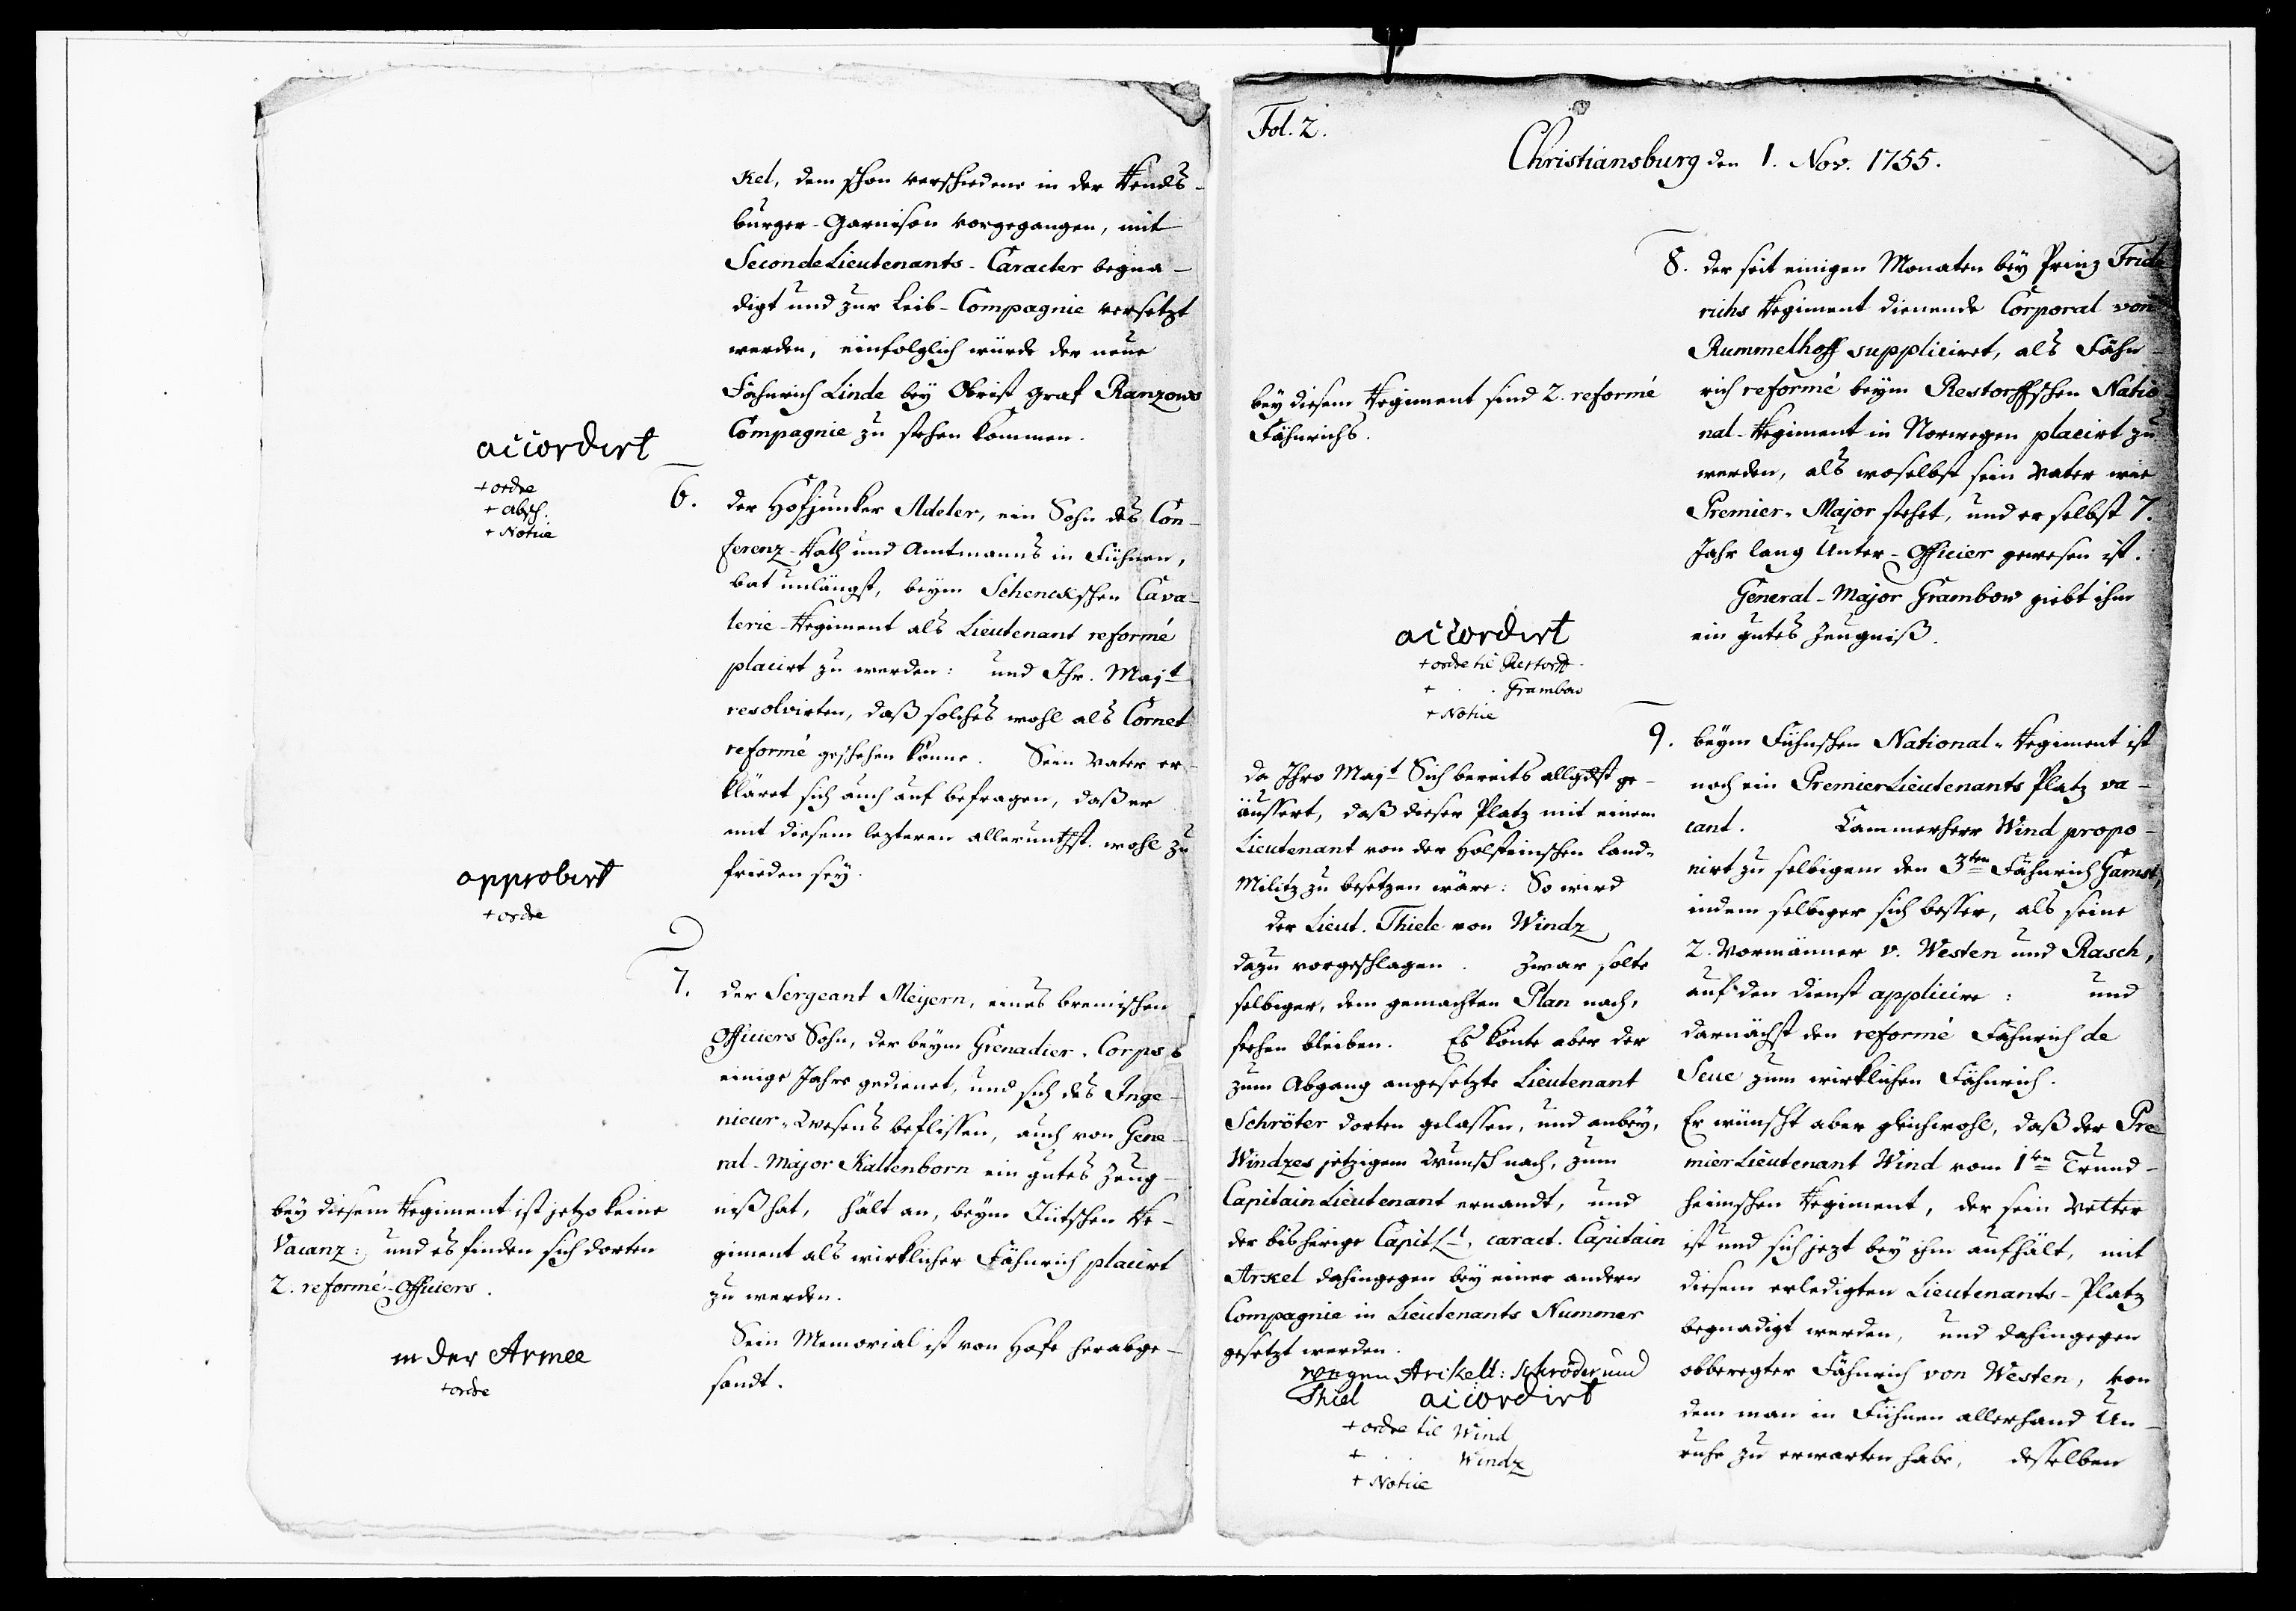 kel, dem schon verschiedene in der Rends-
burger-Garnison vorgegangen, mit
SecondeLieutenants-Caracter begna-
digt und zur Leib-Compagnie versetzt
werden, einfolglich würde der neue
Fähnrich Linde bey Obrist Graf Ranzows
Compagnie zu stehen kommen.
accordirt
+ ordre
+ Absch.
+ Notice
6. der Hofjunker Adeler, ein Sohn des Con-
ferenz-Rath und Amtmanns in Fühnen,
bat unlängst, beym Schenckschen Cava-
lerie-Regiment als Lieutenant reformé
placirt zu werden: und Ihr. Majt
resolvirten, daß solches wohl als Cornet
reformé geschehen könne. Sein Vater er-
kläret sich auch auf befragen, daß er
mit diesem lezteren allerunthst. wohl zu
frieden sey.
approbirt
+ ordre
7. der Sergeant Meijern, eines bremischen
Officiers Sohn, der beym Grenadier-Corps 6
einige Jahre gedienet, und sich des Inge-
nieur-Wesens beflissen, auch von Gene-
ral-Major Kaltenborn ein gutes Zeug-
niß hat, hält an, beym Jütschen Re-
giment als wirklicher Fähnrich placirt
zu werden.
Sein Memorial ist von Hofe herabge-
sandt.
bey diesem Regiment ist jetzo keine
Vacanz: und es finden sich dorten
2. reformé-Officiers.
in der Armee
+ ordre
Fol. 2.
Christiansburg den 1. Nov. 1755.
8. der seit einigen Monaten bey Prinz Fride
richs Regiment dienende Corporal von
Rummelhoff suppliciret, als Fähn-
rich reformé beym Restorffschen Natio
nal-Regiment in Norwegen placirt zu
werden, als woselbst sein Vater wie
Premier-Major stehet, und er selbst 7.
Jahr lang Unter-Officier gewesen ist.
General-Major Grambow giebt ihm
ein gutes Zeugniß.
bey diesem Regiment sind 2. reformé
Fähnrichs.
accordirt
+ ordre til Restorff
+ . . Grambow
+ Notice
9. beym Fühnschen National-Regiment ist
noch ein PremierLieutenants Platz va-
cant. Kammerherr Wind propo-
nirt zu selbigem den 3ten Fähnrich Gamst,
indem selbiger sich besser, als seine
2. Vormänner v. Westen und Rasch,
auf den Dienst applicire: und
darnächst den reformé Fähnrich de
Seue zum wirklichen Fähnrich.
Er wünscht aber gleichwohl, daß der Pre
mierLieutenant Wind vom 1ten Trund-
heimschen Regiment, der sein Vetter
ist und sich jezt bey ihm aufhält, mit
diesem erledigten Lieutenants-Platz
begnadigt werden, und dahingegen
obberegter Fähnrich von Westen, von
dem man in Fühnen allerhand Un-
ruhe zu erwarten habe, desselben
da Ihro Majt Sich bereits allgdst ge-
äussert, daß dieser Platz mit einem
Lieutenant von der Holsteinschen Land-
Militz zu besetzen wäre: So wird
der Lieut. Thiele von Windz
dazu vorgeschlagen. Zwar solte
selbiger, dem gemachten Plan nach,
stehen bleiben. Es könte aber der
zum Abgang angesetzte Lieutenant
Schröter dorten gelassen, und anbey,
Windzes jetzigem Wunsch nach, zum
CapitainLieutenant ernandt, und
der bisherige Capit Lt, caract. Capitain
Arkel dahingegen bey einer andern
Compagnie in Lieutenants Nummer
gesetzt werden.
wegen Arckell: Schröder und
Thiel accordirt
+ ordre til Wind
+ . . Windz
+ Notice